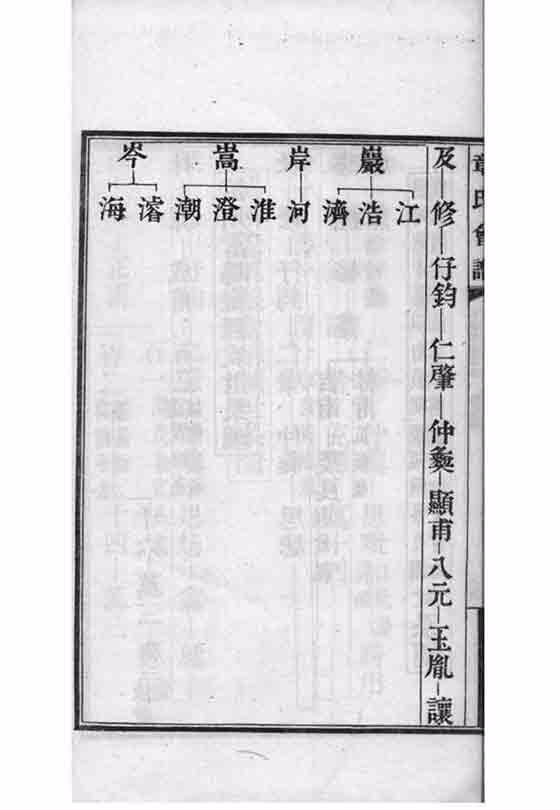 章氏會譜
及 修 仔鈞 仁肇 仲 顯甫 八元 玉胤 讓
巖 岸 嵩 岑
江 浩 濟 河 淮 澄 潮 濬 海